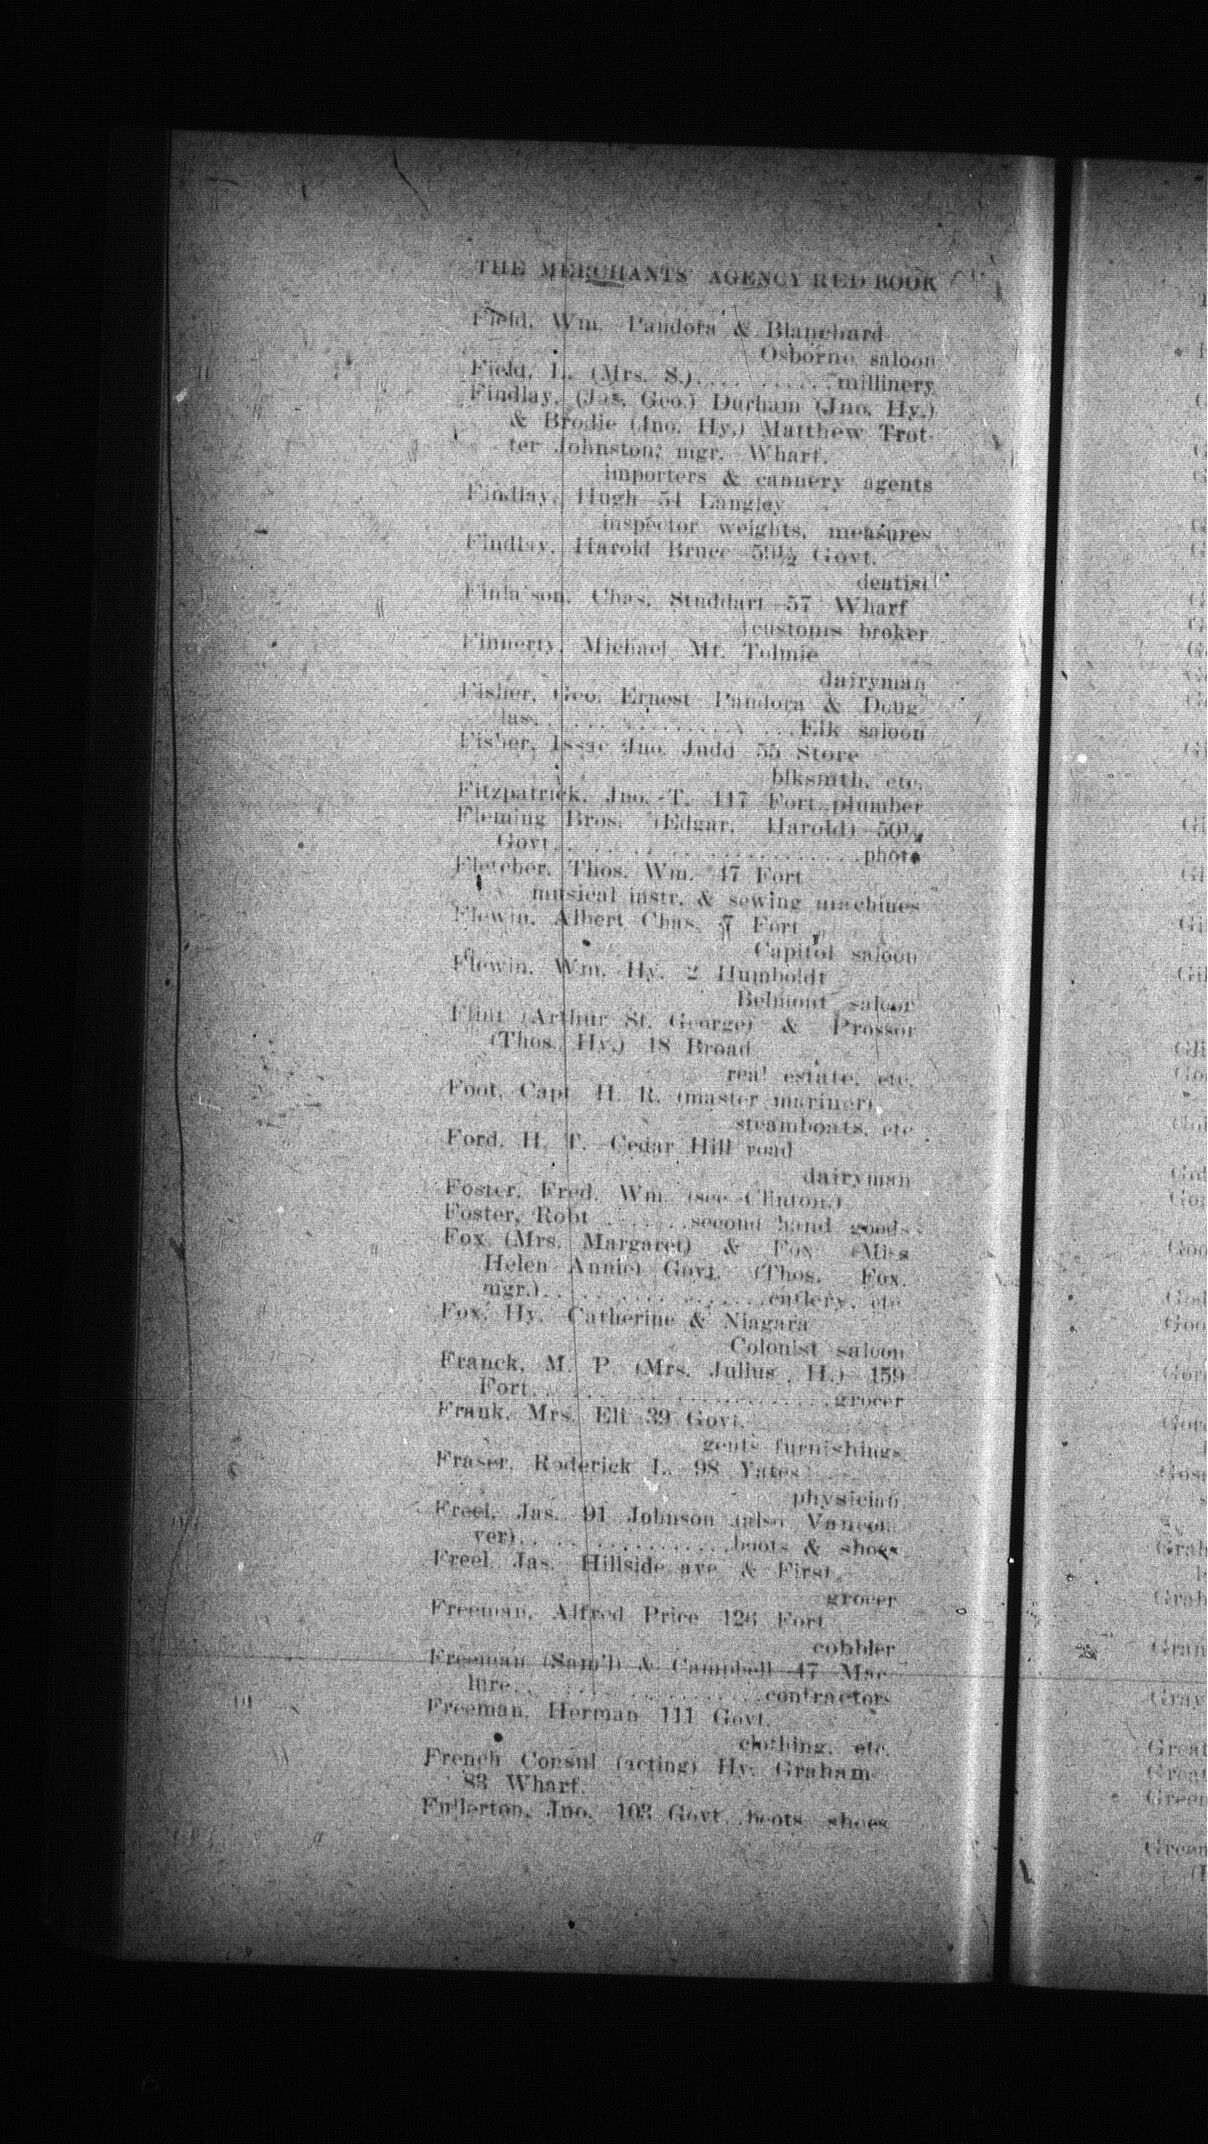 THE MERCHANTS' AGENCY RED BOOK
Field, Wm. Pandora & Blanchard
Osborne saloon
Field, L. (Mrs. S.)............millinery
Findlay, (Jas. Geo.) Durham (Jno. Hy.)
& Brodie (Jno. Hy.) Matthew Trot-
ter Johnston, mgr. Wharf.
importers & cannery agents
Findlay, Hugh 54 Langley
inspector weights, measures
Findlay, Harold Bruce 59½ Govt.
dentist
Finlayson, Chas. Studdart 57 Wharf
customs broker
Finnerty, Michael Mt. Tolmie
dairyman
Fisher, Geo. Ernest Pandora & Doug-
las....................Elk saloon
Fisher, Issac Jno. Judd 55 Store
blksmth, etc.
Fitzpatrick, Jno. T. 117 Fort..plumber
Fleming Bros. (Edgar, Harold) 50½
Govt........................photo
Fletcher, Thos. Wm. 47 Fort
musical instr. & sewing machines
Flewin, Albert Chas. 7 Fort
Capitol saloon
Flewin, Wm. Hy. 2 Humboldt
Belmont saloon
Flint (Arthur St. George) & Prossor
(Thos. Hy.) 18 Broad
real estate, etc.
Foot, Capt H. R. (master mariner)
steamboats, etc
Ford, H. T. Cedar Hill road
dairyman
Foster, Fred. Wm. (see Clinton.)
Foster, Robt ........second hand goods
Fox (Mrs. Margaret) & Fox (Miss
Helen Annie) Govt. (Thos. Fox,
mgr.)..................cutlery, etc
Fox, Hy. Catherine & Niagara
Colonist saloon
Franck, M. P. (Mrs. Julius H.) 159
Fort........................grocer
Frank, Mrs. Eli 39 Govt.
gents furnishings
Fraser, Roderick L. 98 Yates
physician
Freel, Jas. 91 Johnson (also Vancou-
ver)................boots & shoes
Freel, Jas. Hillside ave & First
grocer
Freeman, Alfred Price 126 Fort
cobbler
Freeman (Sam'l) & Campbell 47 Mac-
lure....................contractors
Freeman, Herman 111 Govt.
clothing, etc.
French Consul (acting) Hy. Graham
83 Wharf.
Fullerton, Jno. 103 Govt..boots shoes